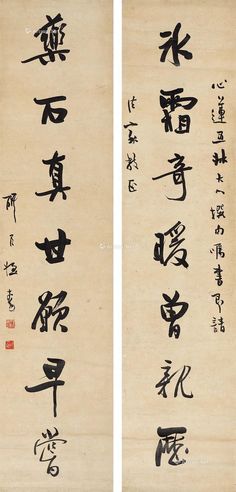 心蓮大人撰句囑書即請
冰霜奇暖曾親歷
法家教正
藥石真甘願早嘗